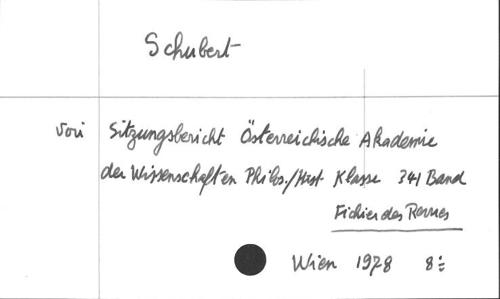 Schubert
Voir Sitzungsbericht Österreichische Akademie
der Wissenschaften Philos./Hist Klasse 341 Band
Fichier des Revues
Wien 1978 8º